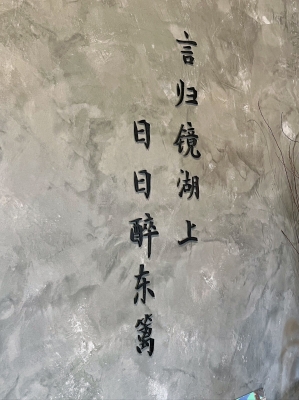 言归镜湖上
日日醉东篱